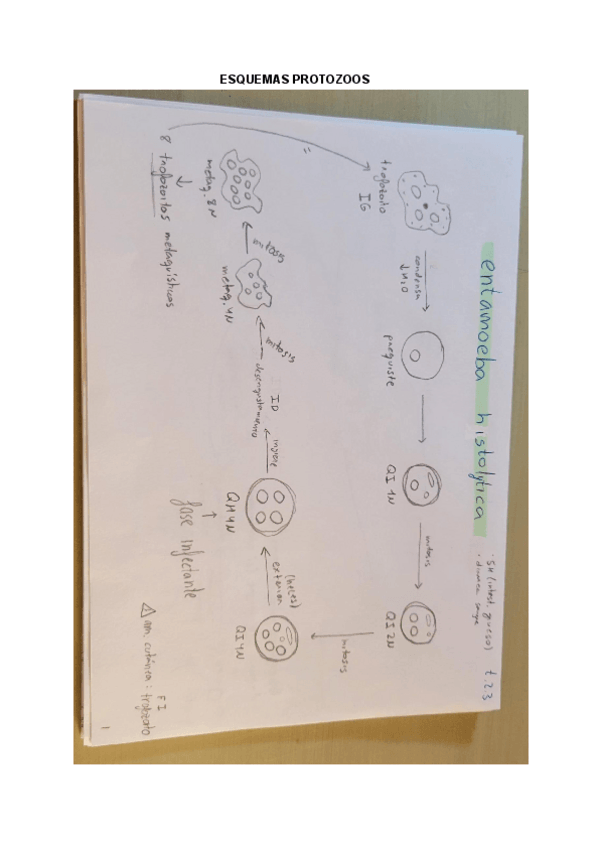 ESQUEMAS PROTOZOOS
entamoeba histolytica
t.23
· SH (intest. grueso)
· diarrea sangre
trofozoito
IG
condensa
↓H₂O
prequiste
QI 1N
mitosis
QI 2N
mitosis
QI 4N
(heces)
exterior
QM 4N
↑
fase infectante
ingiere
ID
desenquistamiento
mitosis
metaq. 4N
mitosis
metaq. 8N
=
8 trofozoitos metaquísticos
FI
am. cutánea: trofozoito
1